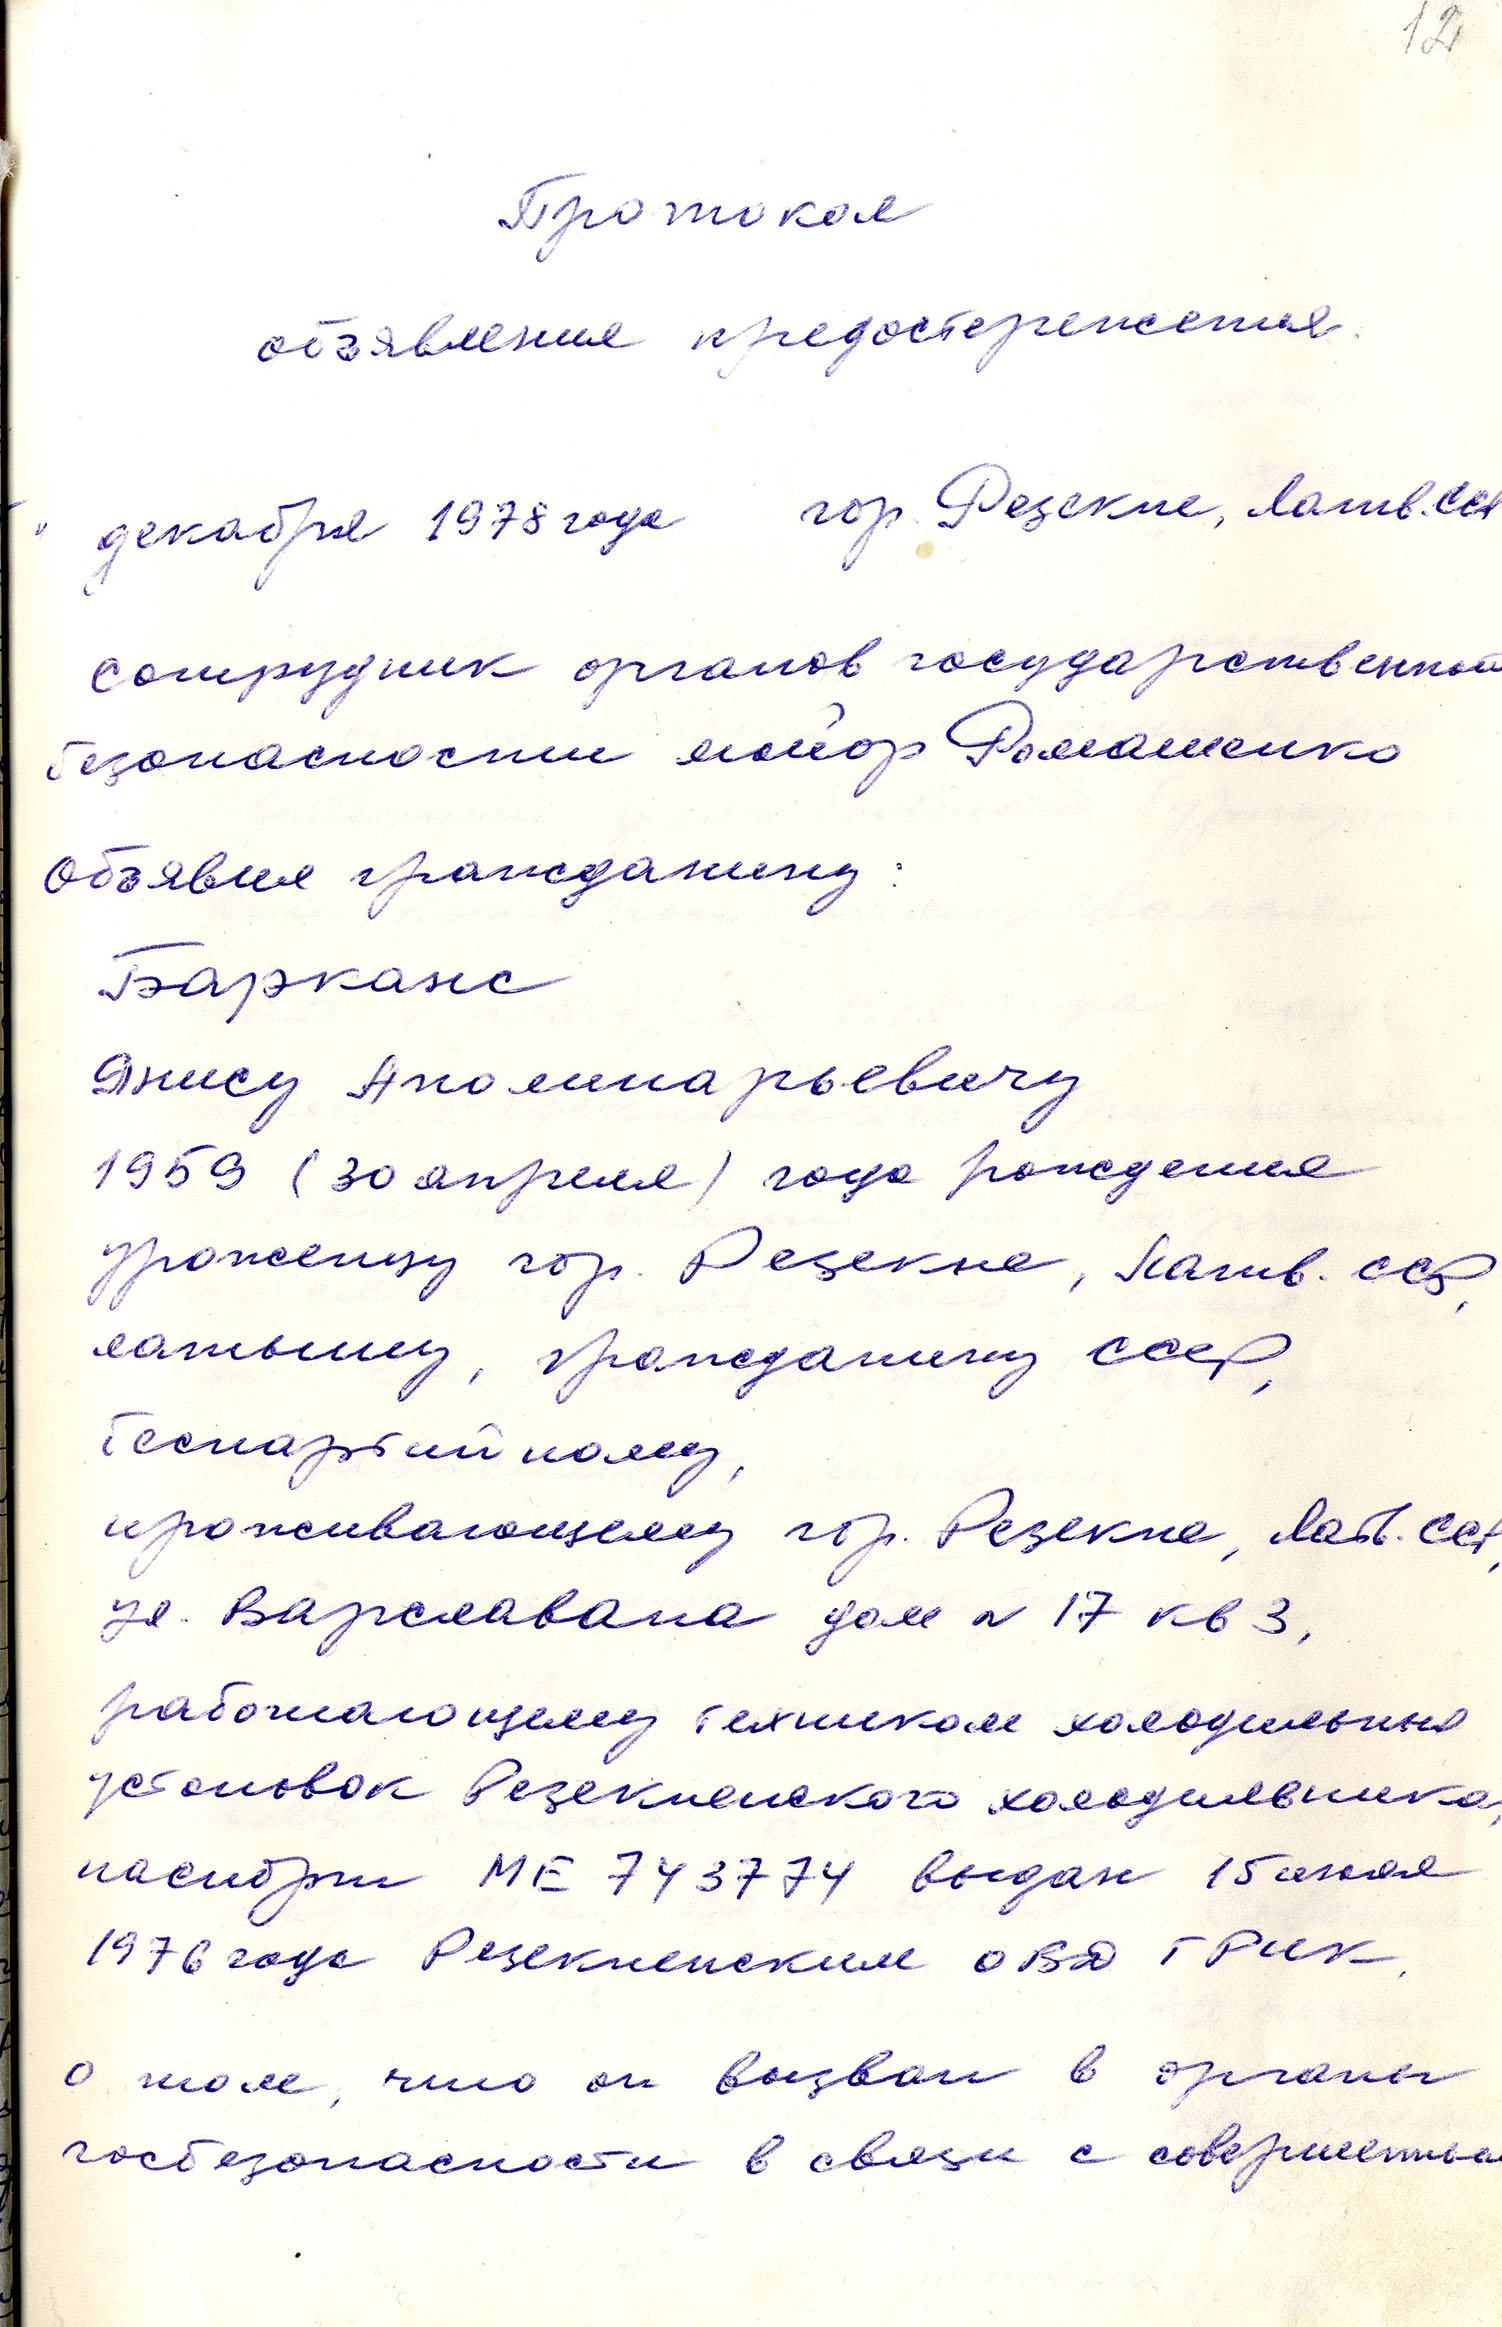 12
Протокол
объявления предостережения.
" декабря 1978 года гор. Резекне, Латв. ССР
сотрудник органов государственной
безопасности майор Ромашенко
объявил гражданину:
Барканс
Янису Аполинарьевичу
1959 (30 апреля) года рождения
уроженцу гор. Резекне, Латв. ССР,
латышу, гражданину СССР,
беспартийному,
проживающему гор. Резекне, Латв. ССР,
ул. Варславана дом № 17 кв 3,
работающему техником холодильных
установок Резекненского холодильника,
паспорт МЕ 743774 выдан 15 июля
1976 года Резекненским ОВД ГРИК.
о том, что он вызван в органы
госбезопасности в связи с совершенным